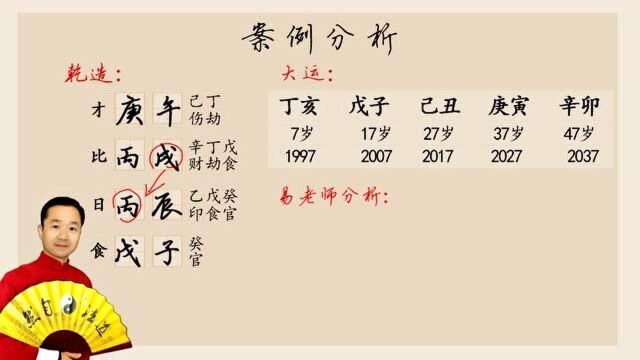 案例分析
乾造：
才 庚 午 己丁
伤劫
比 丙 戌 辛丁戊
财劫食
日 丙 辰 乙戊癸
印食官
食 戊 子 癸
官
大运：
丁亥 戊子 己丑 庚寅 辛卯
7岁 17岁 27岁 37岁 47岁
1997 2007 2017 2027 2037
易老师分析：
然自法道